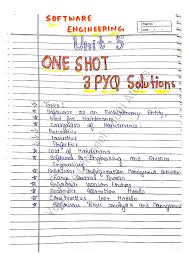 SOFTWARE
ENGINEERING
Unit-5
ONE SHOT
3 PYQ Solutions
Topics:
Software as an Evolutionary Entity
Need for Maintenance
Categories of Maintenance
Preventive
Corrective
Perfective
Cost of Maintenance
Software Re-Engineering and Reverse
Engineering
Software Configuration Management Activities
Change Control Process
Software Version Control
Software Models
Constructive Cost Models
Software Risk Analysis and Management